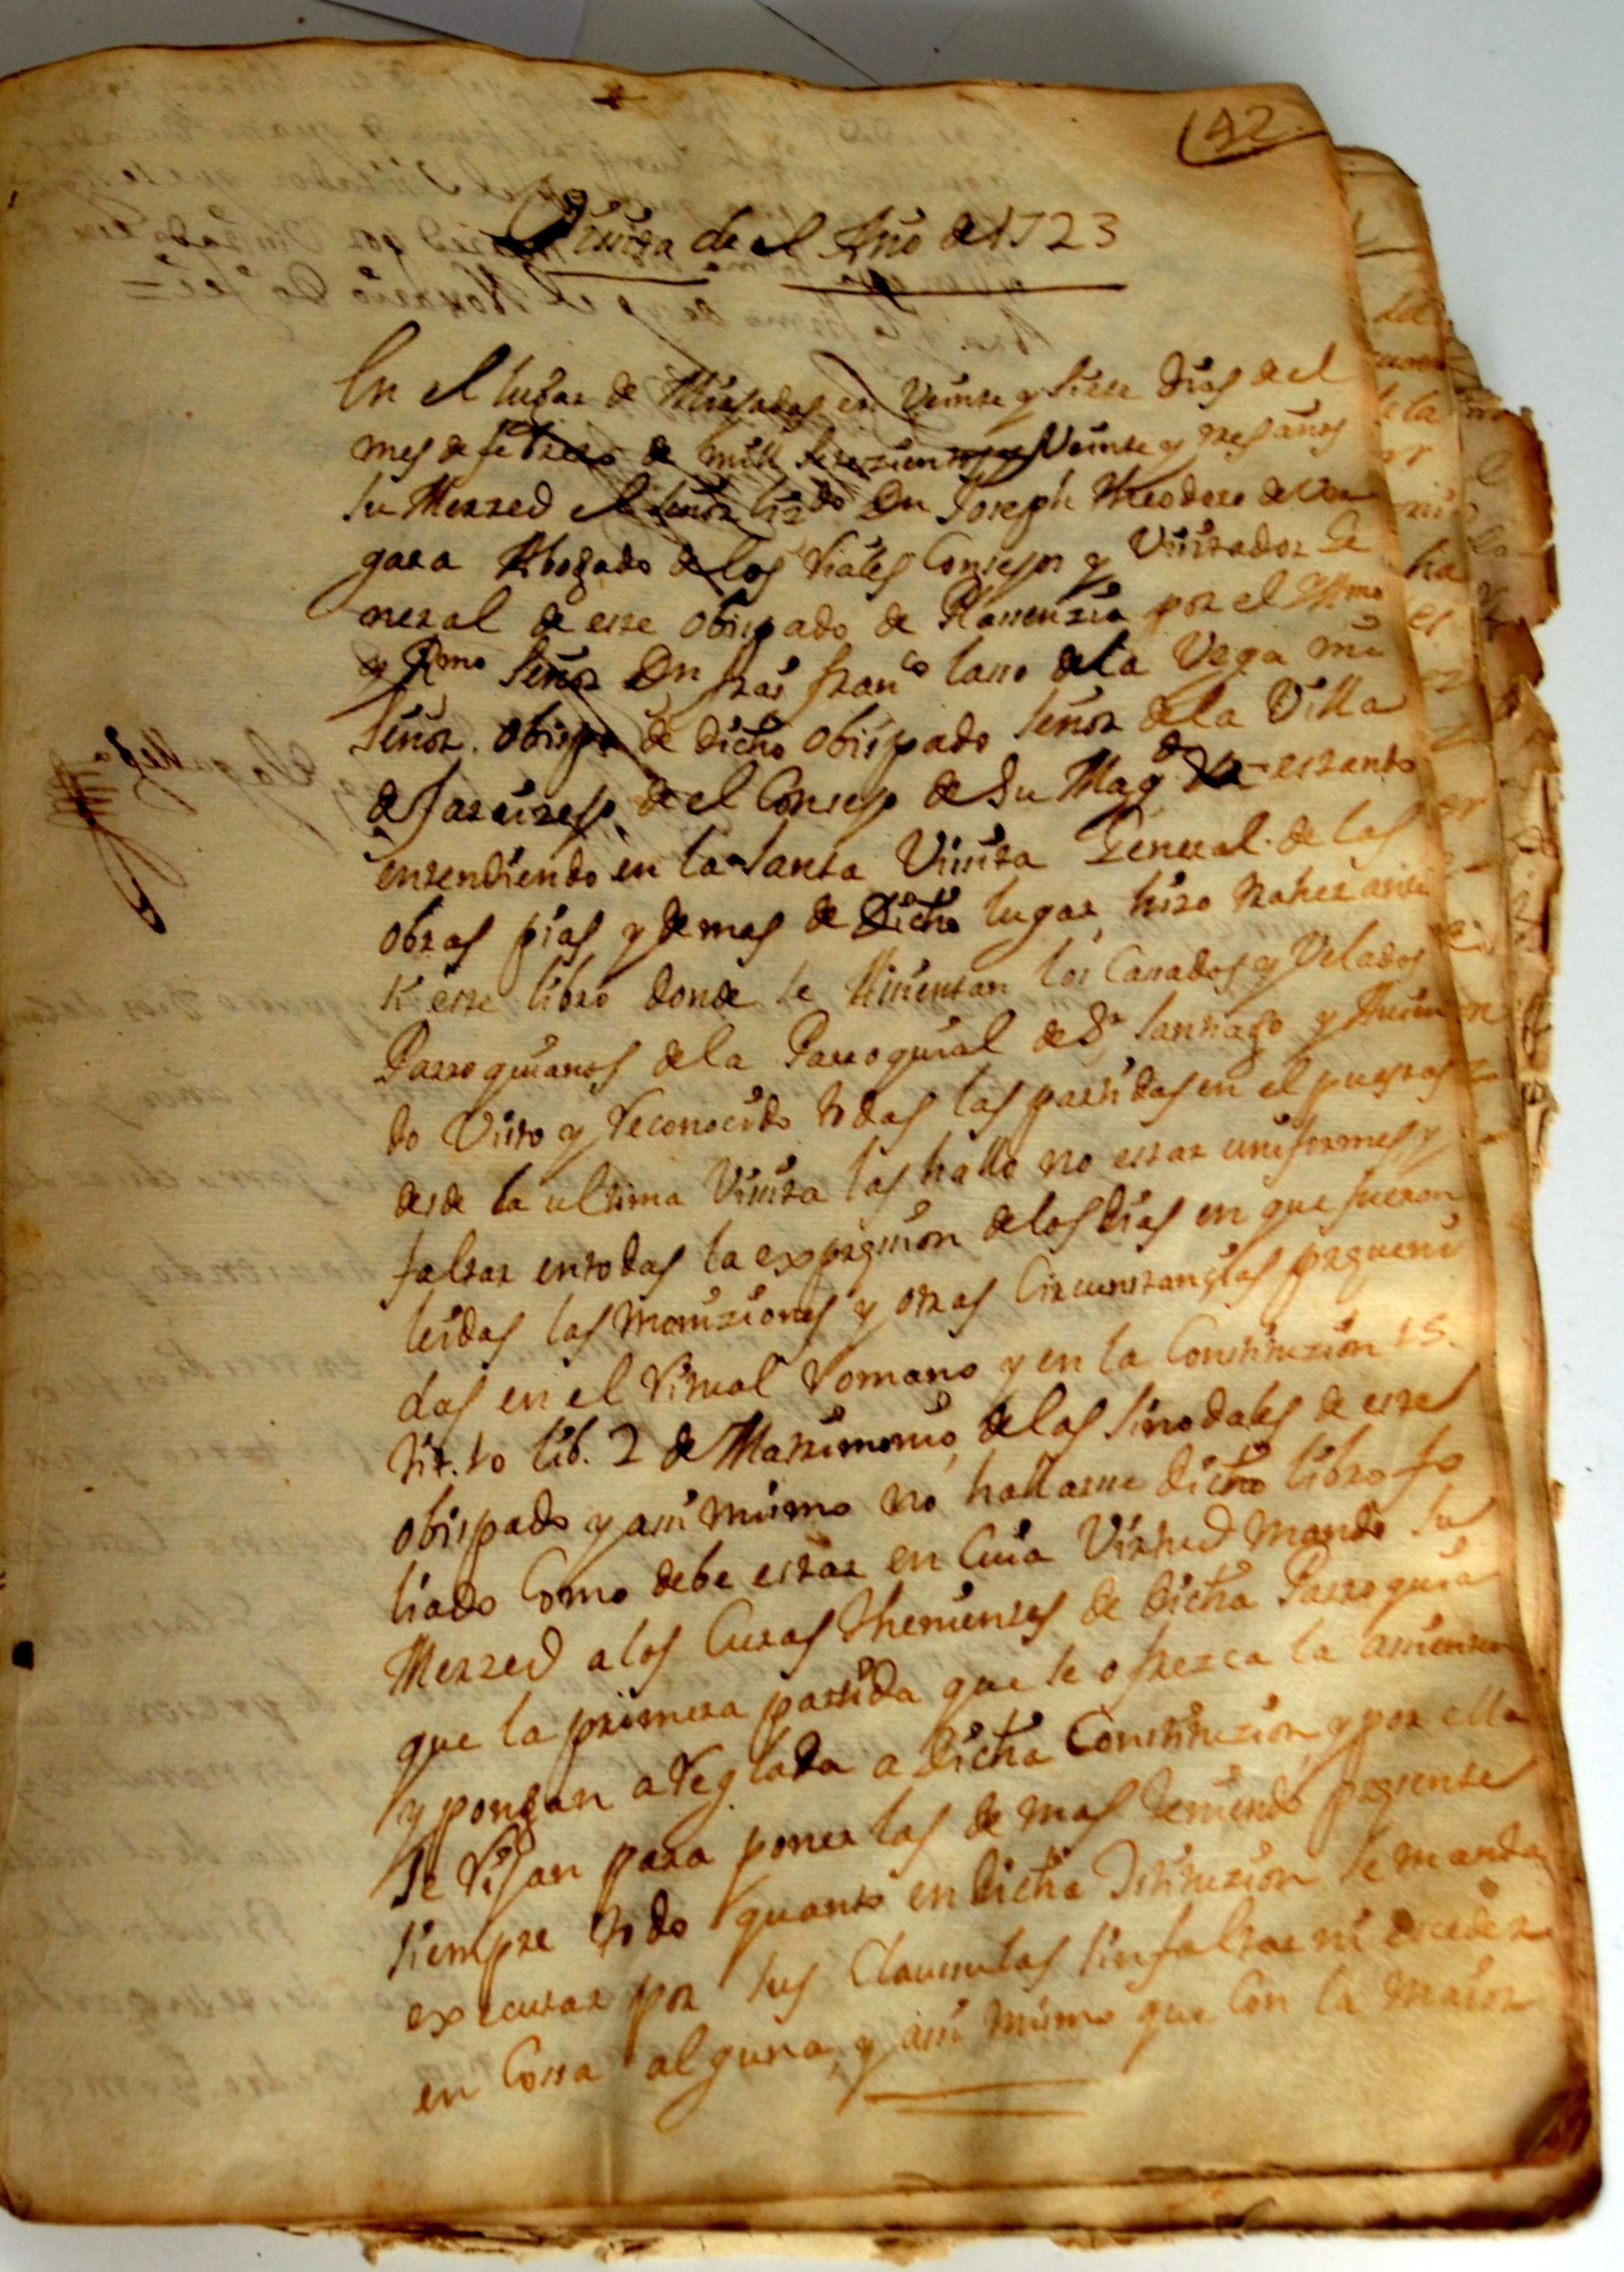 142
Visita de el Año de 1723
En el lugar de Miajadas en Veinte y Siete Dias de el
mes de febrero de mill Setezientos y Veinte y tres años
su Merzed el Señor Lizdo Dn Joseph Theodoro de Ver
gara Abogado de los Reales Consejos y Visitador Ge
neral de este Obispado de Plassenzia por el Yllmo
y Rmo Señor Dn frai franco lasso de la Vega mi
Señor Obispo de dicho Obispado Señor de la Villa
de Jaraizejo de el Consejo de Su Magd estando
entendiendo en la Santa Vissita General de las
obras pias y demas de Dicho lugar, hizo traher ante
si este libro donde se Assientan los Cassados y Velados
Parroquianos de la Parroquial de Sr Santiago y Auien
do Visto y Reconocido todas las partidas en el puestas
desde la ultima Vissita las hallo no estar uniformes, y
faltar en todas la expression de los dias en que fueron
leidas las moniziones y otras Circunstanzias preueni
das en el Ritual Romano y en la Constituzion 15.
tit. 10 lib. 2 de Matrimonio, de las Sinodales de este
obispado y assi mismo no hallarse dicho libro fo
liado Como debe estar en Cuia Virtud mando su
Merzed a los Curas thenientes de Dicha Parroquia
que la primera partida que se ofrezca la assienten
y pongan aReglada a Dicha Constituzion, y por ella
se Rijan para poner las demas teniendo presente
siempre todo quanto en dicha Istituzion se manda
executar por sus Clausulas sin faltar ni exceder
en Cossa alguna, y assi mismo que Con la maior